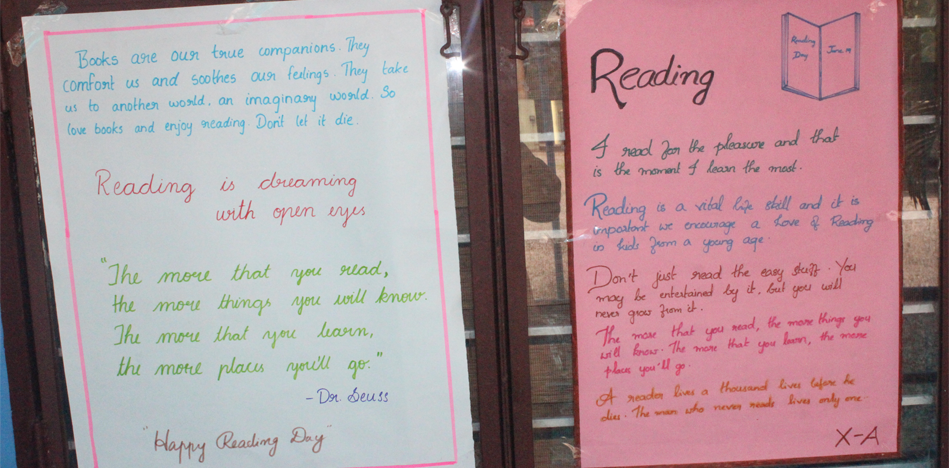 Books are our true companions. They
comfort us and soothes our feelings. They take
us to another world, an imaginary world. So
love books and enjoy reading. Don't let it die.
Reading is dreaming
with open eyes
"The more that you read,
the more things you will know.
The more that you learn,
the more places you'll go."
- Dr. Seuss
"Happy Reading Day"
Reading
Reading
Day
June 19
I read for the pleasure and that
is the moment I learn the most.
Reading is a vital life skill and it is
important we encourage a Love of Reading
in kids from a young age.
Don't just read the easy stuff. You
may be entertained by it, but you will
never grow from it.
The more that you read, the more things you
will know. The more that you learn, the more
places you'll go.
A reader lives a thousand lives before he
dies. The man who never reads lives only one.
X-A